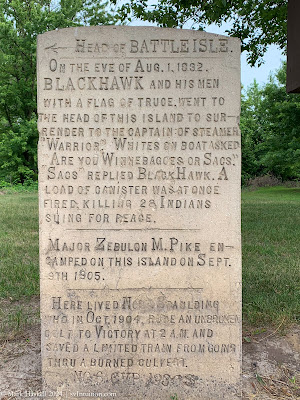 ← HEAD OF BATTLE ISLE.
ON THE EVE OF AUG. 1, 1832.
BLACKHAWK AND HIS MEN
WITH A FLAG OF TRUCE, WENT TO
THE HEAD OF THIS ISLAND TO SUR-
RENDER TO THE CAPTAIN OF STEAMER
"WARRIOR." WHITES ON BOAT ASKED
"ARE YOU WINNEBAGOES OR SACS?"
"SACS" REPLIED BLACKHAWK. A
LOAD OF CANISTER WAS AT ONCE
FIRED, KILLING 23 INDIANS
SUING FOR PEACE.
MAJOR ZEBULON M. PIKE EN-
CAMPED ON THIS ISLAND ON SEPT.
9TH 1805.
HERE LIVED SPAULDING
WHO IN OCT. 1904, RODE AN UNBROKEN
COLT TO VICTORY AT 2 A.M. AND
SAVED A LIMITED TRAIN FROM GOING
THRU A BURNED CULVERT.